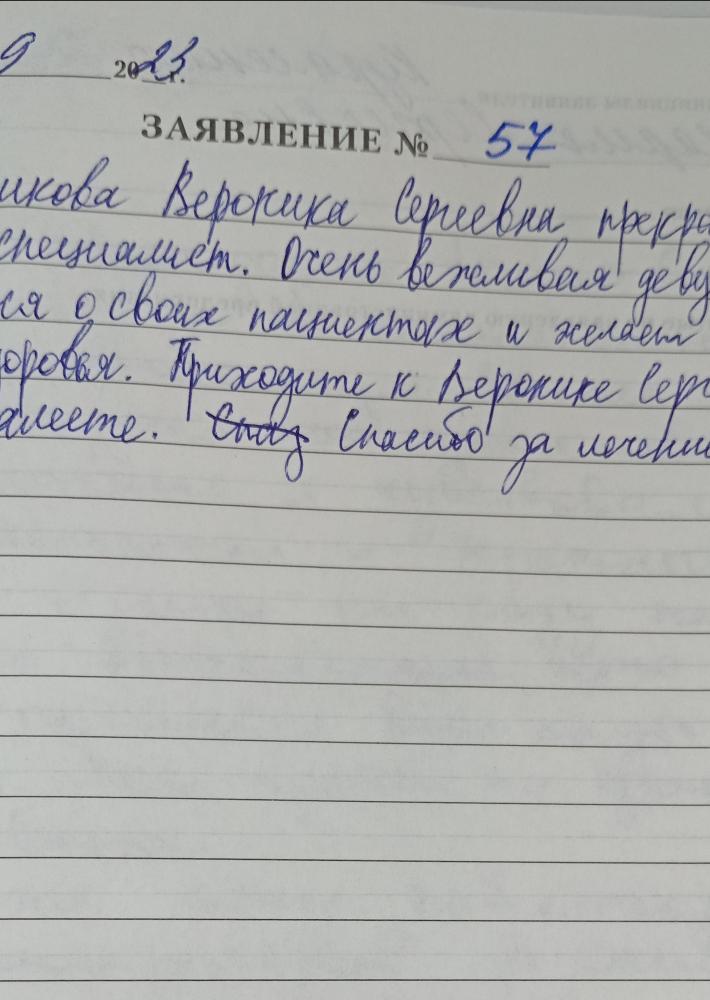 9 2023 г.
ЗАЯВЛЕНИЕ № 57
икова Вероника Сергеевна прекра
специалист. Очень вежливая деву
ся о своих пациентах и желает
доровья. Приходите к Веронике Серг
алеете. Спасибо за лечени